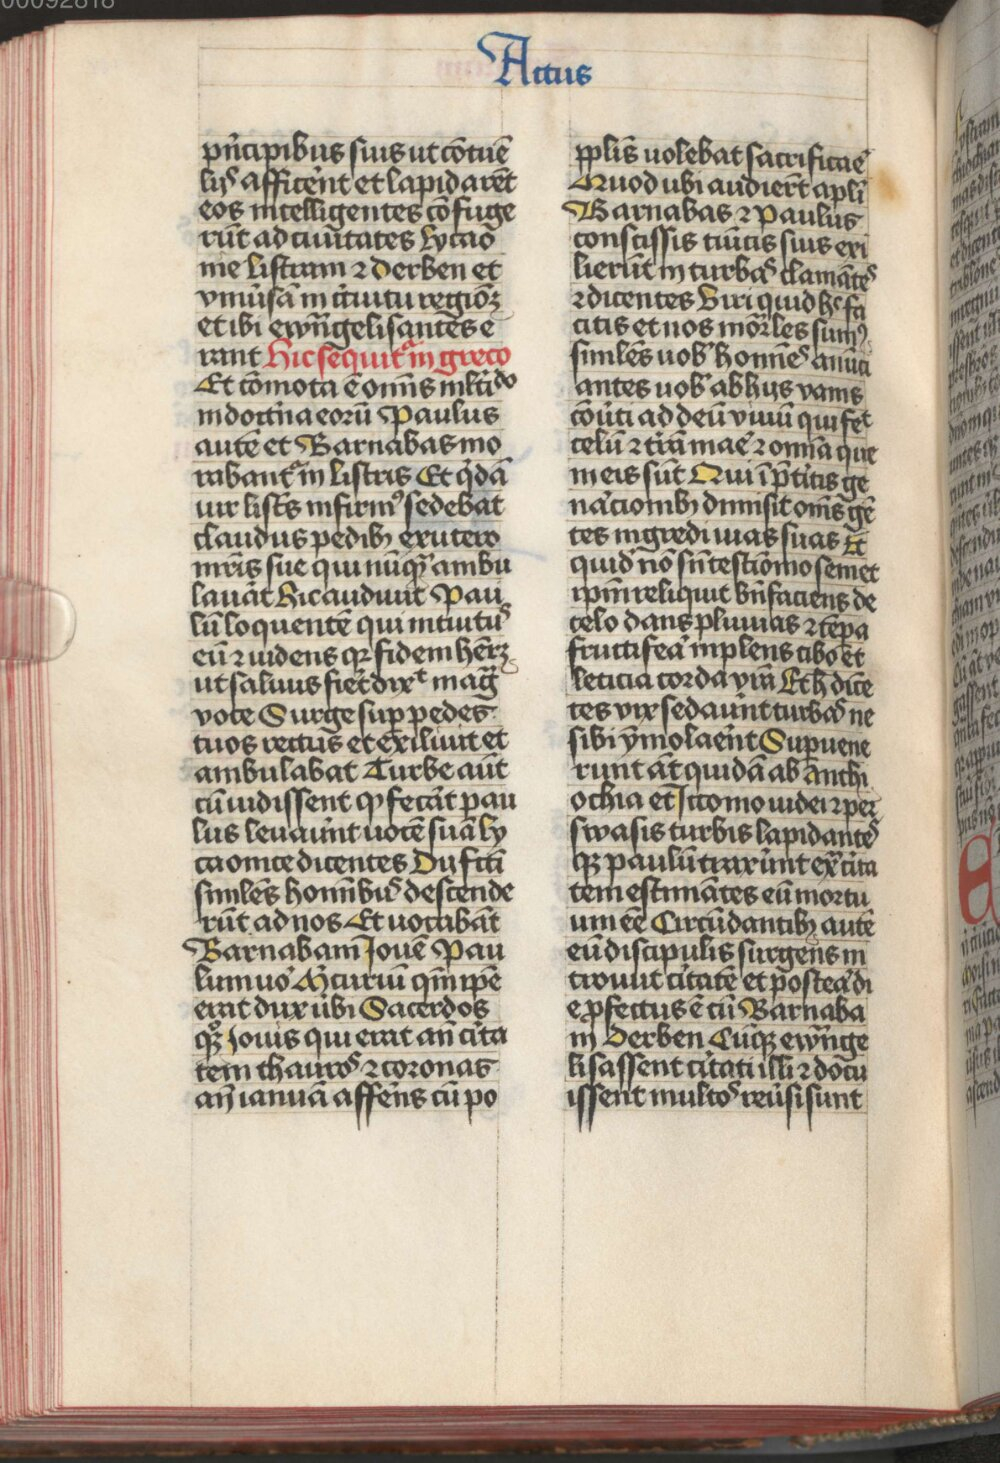 00092818
Actus
pⁿcipibus suis ut cōtūē
lijs afficēnt et lapidarēt
eos intelligentes cōfuge
rūt ad ciuitates lycaō
nie listram ⁊ derben et
vniūsā in circuitu regiōꝫ
et ibi ewāngelisantes e
rant Hic sequitᵃ in greco
Et cōmota ē omīs mltīdo
in doctⁱna eorū Paulus
autē et Barnabas mo
rabantᵃ in listris Et qⁱdā
uir listⁱs infirmꝰ sedebat
claudus pedibꝫ ex utero
mr̄is sue qui nūqꝫ ambu
lauat̄ Hic audiuit Pau
lū loquentē qui intuitus
eū ⁊ uidens qꝫ fidem hēr̄ꝫ
ut saluus fiēt dixᵗ magⁿ
voce Surge suꝑ pedes
tuos rectus et exiliuit et
ambulabat Turbe aūt
cū uidissent qꝫ fecāt pau
lus leuauⁿt uocē suā ly
caonice dicentes Dij fcti
similes homībus descende
rūt ad nos Et uocabāt
Barnabam Jouē Pau
lum uo Mcuriū qm̄ ipē
erat dux ūbi Sacerdos
qꝫ Jouis qui erat añ cita
tem thauros ⁊ coronas
añ ianuā affēns cū po
pplis uolebat sacrificaē
Quod ubi audierⁿt apli
Barnabas ⁊ Paulus
conscissis tūicis suis exi
lierūt in turbas clamātes
⁊ dicentes Viri quid hᶜ fa
citis et nos morles sumꝰ
similes uobᵉ homies anūci
antes uobᵉ ab hijs vanis
cōuti ad deū viuū qui fecᵗ
celū ⁊ trā maē ⁊ omīa que
in eis sūt Qui ī pⁿtitis ge
nacionibꝫ dimisit oms gē
tes ingredi uias suas Et
quid nō sn̄ testimō semet
ipm reliquit bn̄faciens de
celo dans pluuias ⁊ tēpa
fructifeā inplens cibo et
leticia corda vrā Et h dice
tes vix sedauⁿt turbas ne
sibi ymolaēnt Supuene
runt āt quidā ab Anthi
ochia et Jconio iudei ⁊ per
swasis turbis lapidantes
qꝫ paulū traxⁿunt exᵃ cita
tem estimātes eū mortu
um ēē Circūdantibꝫ autē
eū discipulis surgens in
trouit citatē et postea di
e ꝓfectus ē cū Barnaba
in Derben Cūqꝫ ewānge
lisassent citati illi ⁊ docu
issent multos reusi sunt